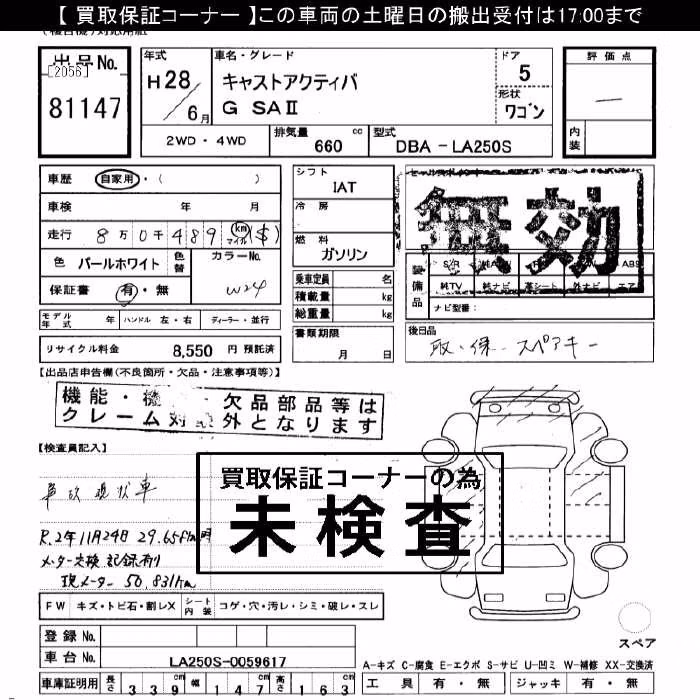 【 買取保証コーナー 】この車両の土曜日の搬出受付は17:00まで
出品No.
[2056]
81147
年式
H28/6月
車名・グレード
キャストアクティバ
G SAⅡ
ドア
5
形状
ワゴン
評価点
—
内装
2WD・4WD
排気量 660 cc
型式 DBA－LA250S
車歴 自家用・( )
車検 年 月
走行 8万0千489 km マイル ($)
色 パールホワイト 色替 カラーNo. W24
保証書 有・無
モデル年式 年 ハンドル 左・右 ディーラー・並行
リサイクル料金 8,550 円 預託済
シフト
IAT
冷房
燃料
ガソリン
乗車定員 名
積載量 kg
総重量 kg
書類期限
月 日
無効
装備品
純TV 純ナビ 革シート 外ナビ エアB
ナビ型番：
後日品
取・保・スペアキー
【出品店申告欄(不良箇所・欠品・注意事項等)】
機能・機 欠品部品等は
クレーム対 外となります
【検査員記入】
買取保証コーナーの為
未検査
車次現状車
R.2年11月24日 29.65 km時
メーター交換 記録有り
現メーター 50,831km
FW キズ・トビ石・割レX シート内装 コゲ・穴・汚レ・シミ・破レ・スレ
スペア
登録 No.
車台 No. LA250S-0059617
車庫証明用 長さ 339 幅 147 高さ 163
A-キズ C-腐食 E-エクボ S-サビ U-凹ミ W-補修 XX-交換済
工具 有・無 ジャッキ 有・無